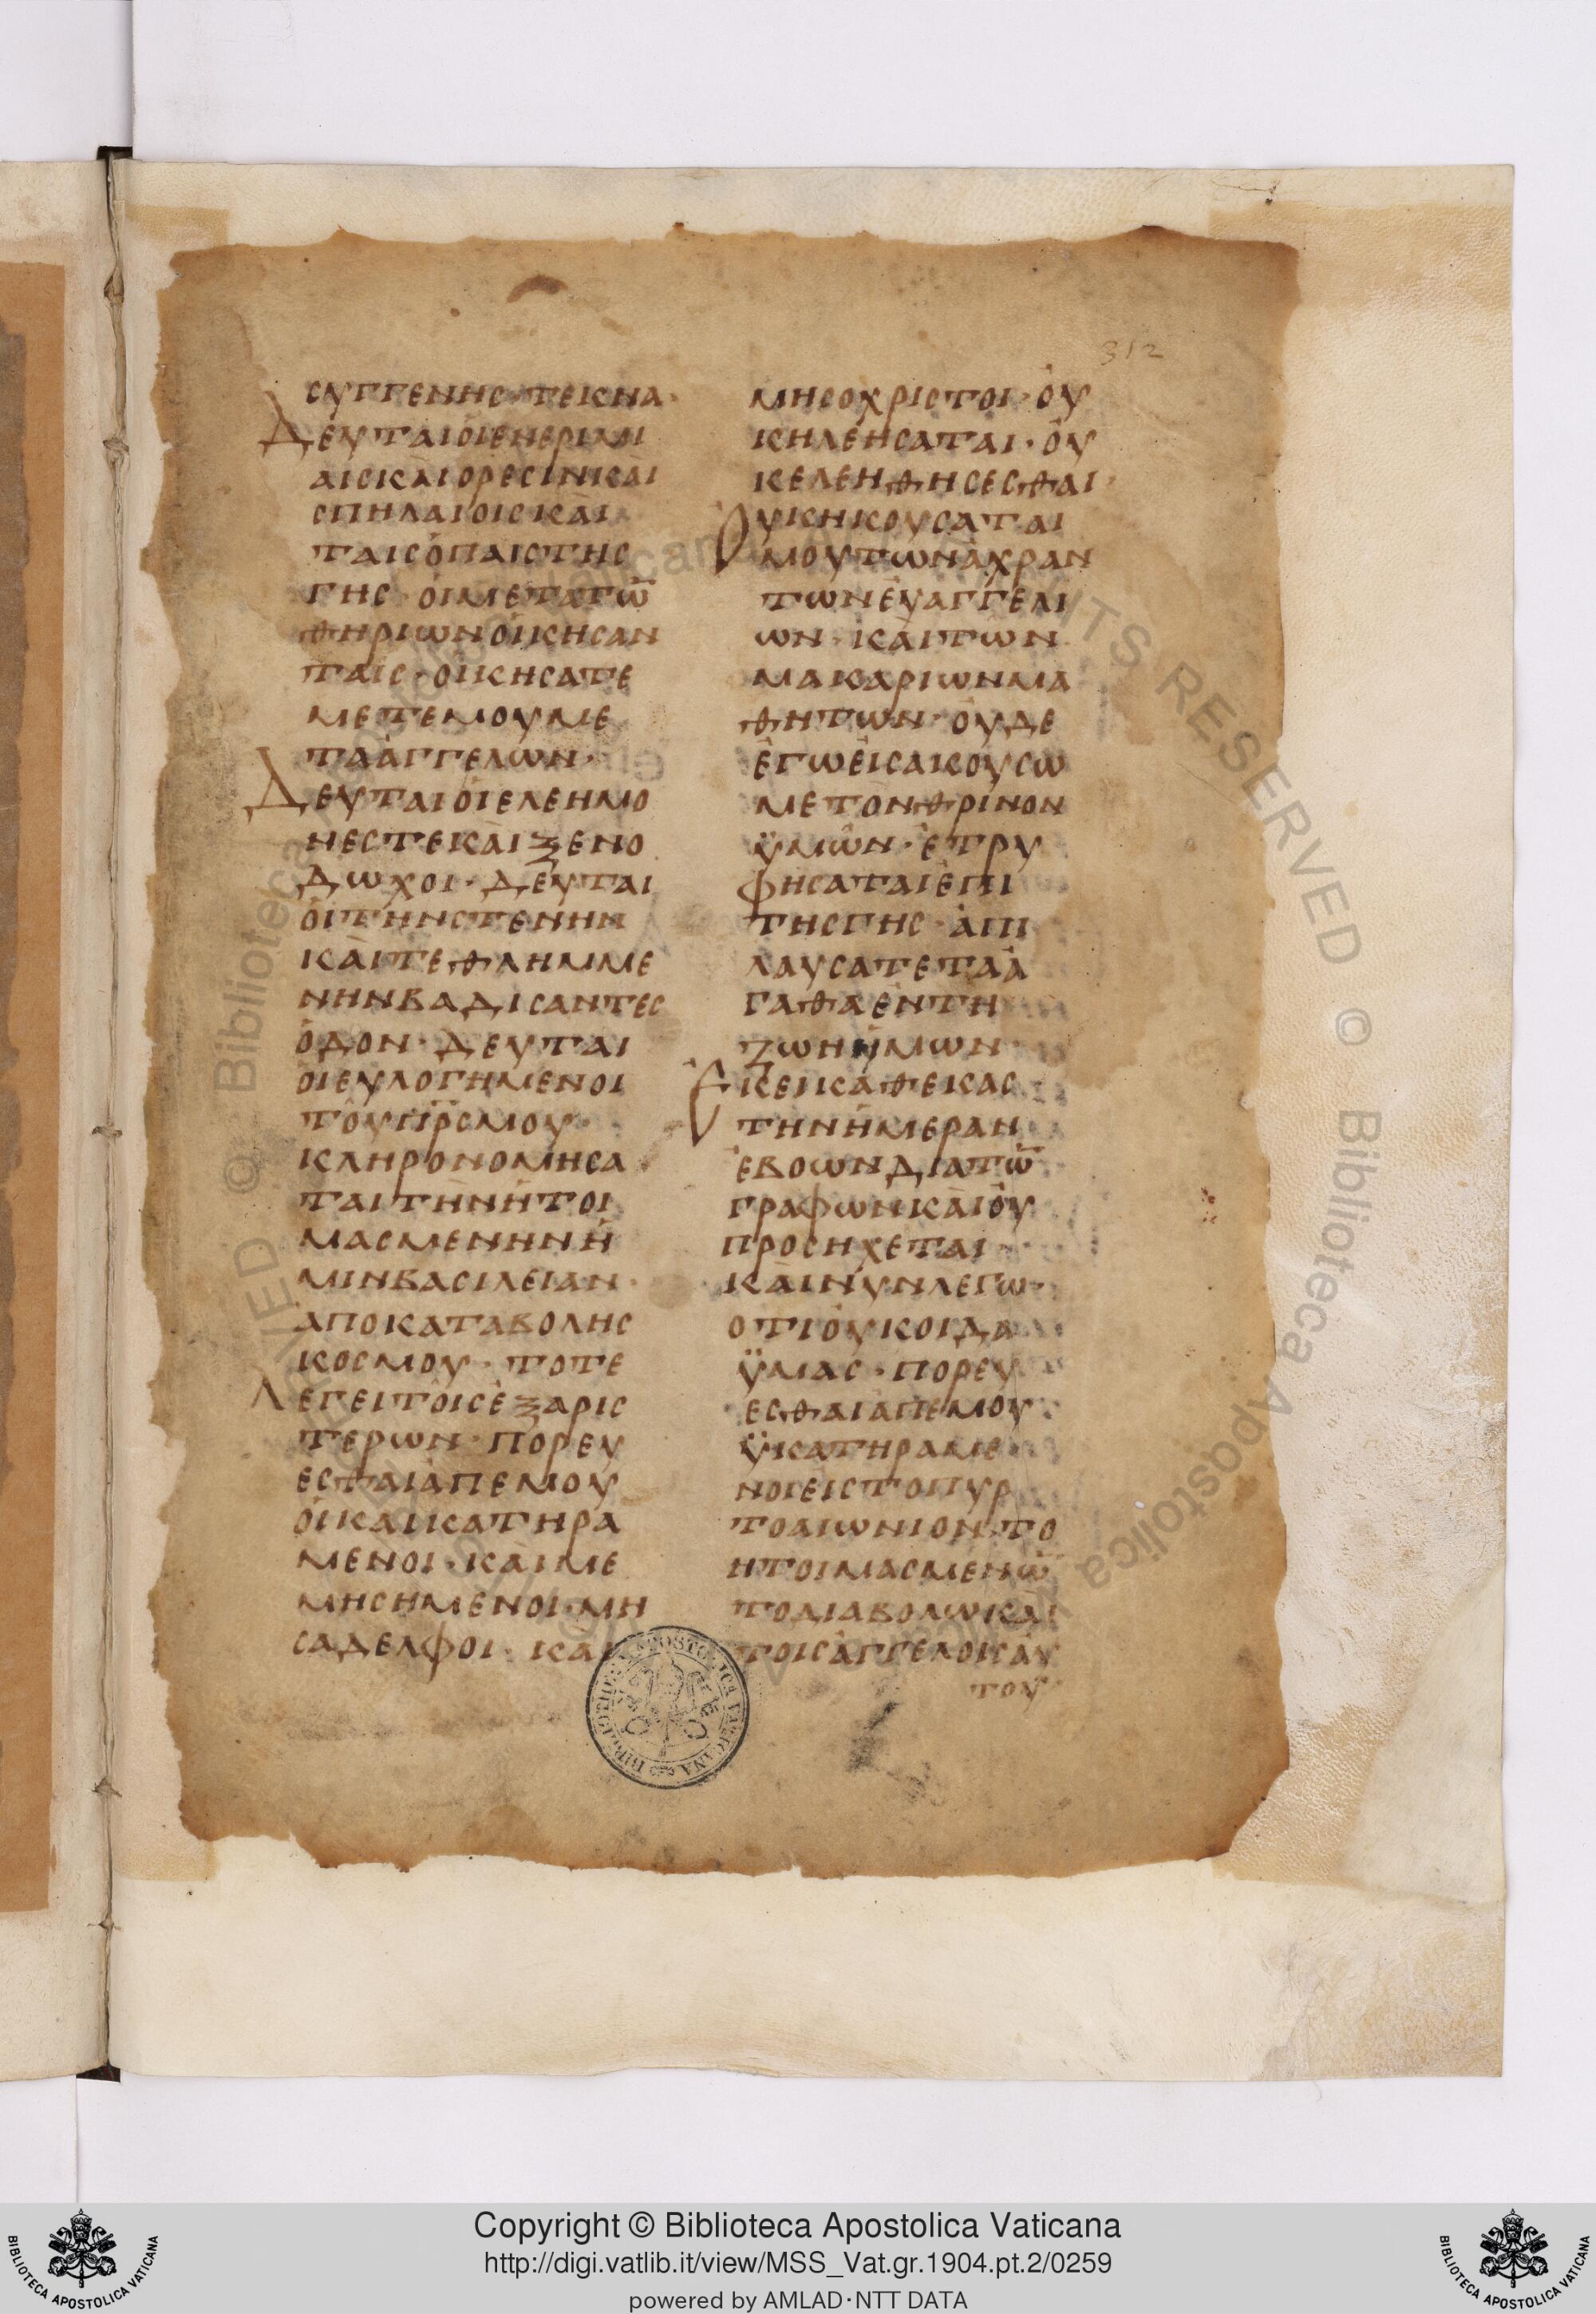 312
ΣΥΓΓΕΝΗΣ·ΤΕΚΝΑ·
ΔΕΥΤΑΙ ΟἹ ΕΝ ΕΡΙΜΟΙ
ΑΙΣ ΚΑῚ ΟΡΕΣΙΝ ΚΑῚ
ΣΠΗΛΑΙΟΙΣ ΚΑῚ
ΤΑΙΣ ὈΠΑΙΣ ΤΗΣ
ΓΗΣ· ΟἹ ΜΕΤΑ ΤΩ̅
ΘΗΡΙΩΝ ΟἸΚΗΣΑΝ
ΤΑΙΣ· ΟΙΚΗΣΑΤΕ
ΜΕΤ ΕΜΟΥ ΜΕ
ΤΑ ἈΓΓΕΛΩΝ·
ΔΕΥΤΑΙ ΟἹ ΕΛΕΗΜΟ
ΝΕΣ ΤΕ ΚΑῚ ΞΕΝΟ
ΔΩΧΟΙ· ΔΕΥΤΑΙ
ΟἹ ΤῊΝ ΣΤΕΝΗΝ
ΚΑῚ ΤΕΘΛΗΜΜΕ
ΝΗΝ ΒΑΔΙΣΑΝΤΕΣ
ὉΔΟΝ· ΔΕΥΤΑΙ
ΟΙ ΕΥΛΟΓΗΜΕΝΟΙ
ΤΟΥ͂ Π̅Ρ̅Σ ΜΟΥ·
ΚΛΗΡΟΝΟΜΗΣΑ
ΤΑΙ ΤῊΝ ἩΤΟΙ
ΜΑΣΜΕΝΗΝ Ἡ
ΜΙΝ ΒΑΣΙΛΕΙΑΝ·
ΑΠΟ ΚΑΤΑΒΟΛΗΣ
ΚΟΣΜΟΥ· ΤΟΤΕ
ΛΕΓΕΙ ΤΟΙΣ ἘΞ ΑΡΙΣ
ΤΕΡΩΝ· ΠΟΡΕΥ
ΕΣΤΑΙ ἈΠ ΕΜΟΥ
ΟἹ ΚΑΙ ΚΑΤΗΡΑ
ΜΕΝΟΙ· ΚΑῚ ΜΕ
ΜΗΣΗΜΕΝΟΙ· ΜΗ
ΣΑΔΕΛΦΟΙ· ΚΑΙ
ΜΗΣΟΧΡΙΣΤΟΙ· ΟΥ̓
Κ ΗΛΕΗΣΑΤΑΙ· ΟΥ̓
Κ ΕΛΕΗΘΗΣΕΣΘΑΙ·
ΟΥΚ ΗΚΟΥΣΑΤΑΙ
ΜΟΥ ΤΩΝ ἈΧΡΑΝ
ΤΩΝ ΕΥ̓ΑΓΓΕΛΙ
ΩΝ· ΚΑῚ ΤΩΝ
ΜΑΚΑΡΙΩΝ ΜΑ
ΘΗΤΩΝ· ΟΥ̓ΔΕ
ἘΓΩ ΕἸΣΑΚΟΥΣΩ
ΜΕ ΤΟΝ ΘΡΙΝΟΝ
Ϋ̔ΜΩ͂Ν· ἘΤΡΥ
ΦΗΣΑΤΑΙ ἘΠΙ
ΤΗΣ ΓΗΣ· ἈΠΙ
ΛΑΥΣΑΤΕ ΤΑ Ἀ
ΓΑΘΑ ἘΝ ΤΗ
ΖΩΗ ἩΜΩΝ·
ΕΚΕΙ ΚΑΘ ΕΚΑΣ
ΤΗΝ ἩΜΕΡΑΝ
ἘΒΟΩΝ ΔΙΑ ΤΩ̅
ΓΡΑΦΩΝ ΚΑῚ ΟΥ̓
ΠΡΟΣΗΧΕΤΑΙ·
ΚΑῚ ΝΥΝ ΛΕΓΩ·
ΟΤΙ ΟΥ̓Κ ΟΙΔΑ
Ϋ̔ΜΑΣ· ΠΟΡΕΥ
ΕΣΘΑΙ ἈΠ ΕΜΟΥ
Ϋ̔ ΚΑΤΗΡΑΜΕ
ΝΟΙ ΕἸΣ ΤΟ ΠΥΡ
ΤΟ ΑΙΩΝΙΟΝ· ΤΟ
ΗΤΟΙΜΑΣΜΕΝΩ̅
ΤΟ ΔΙΑΒΟΛΩ ΚΑῚ
ΤΟΙΣ ἈΓΓΕΛΟΙΣ ΑΥ̓
ΤΟΥ·
Copyright © Biblioteca Apostolica Vaticana
http://digi.vatlib.it/view/MSS_Vat.gr.1904.pt.2/0259
powered by AMLAD·NTT DATA